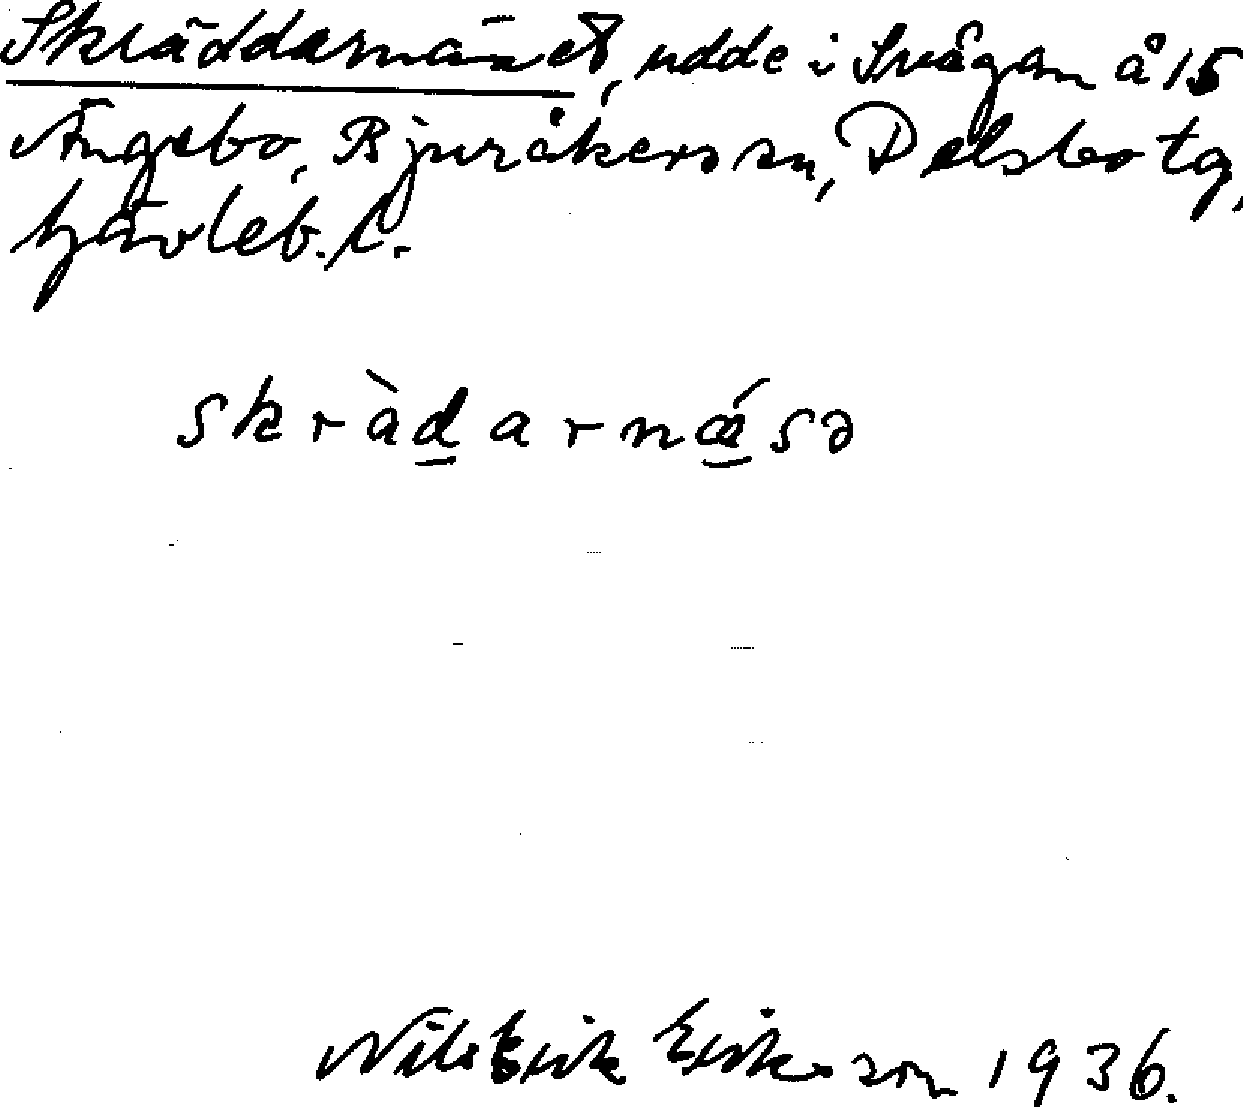 Skräddarnäset, udde i Svågan å 15
Ängebo, Bjuråkers sn, Delsbo tg,
Gävleb. l.
skràdarnǽsə
Nils Erik Eriksson 1936.